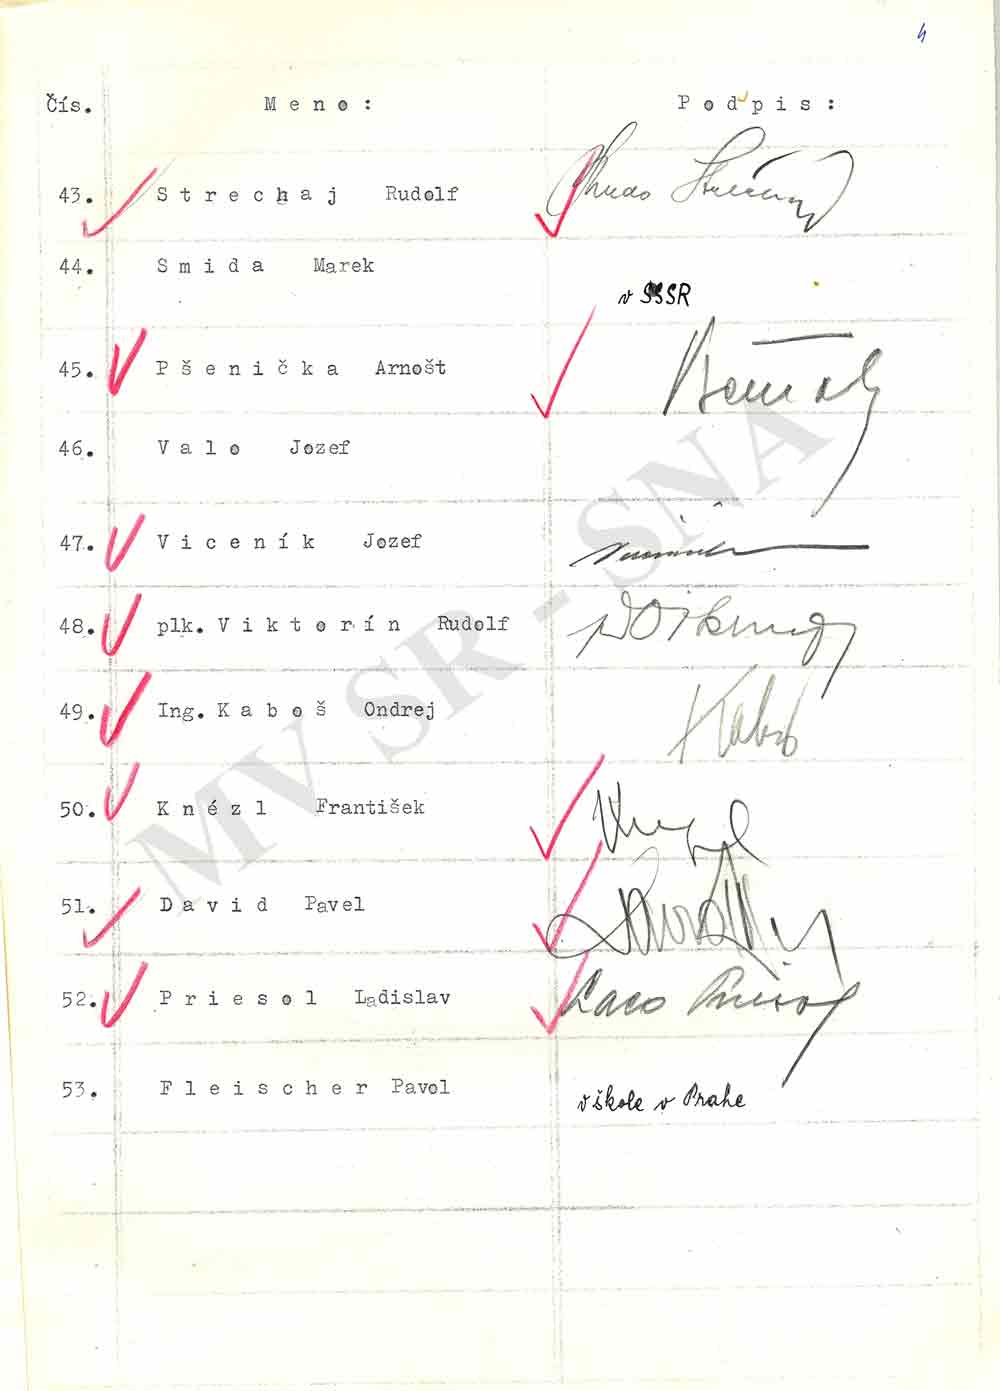 4
Čís. Meno: Podpis:
43. Strechaj Rudolf Rudo Strechaj
44. Smida Marek
v SSSR
45. Pšenička Arnošt
46. Valo Jozef
47. Viceník Jozef
48. plk. Viktorín Rudolf
49. Ing. Kaboš Ondrej Kaboš
50. Knézl František
51. David Pavel
52. Priesol Ladislav Laco Priesol
53. Fleischer Pavol
v škole v Prahe
MV SR - SNA